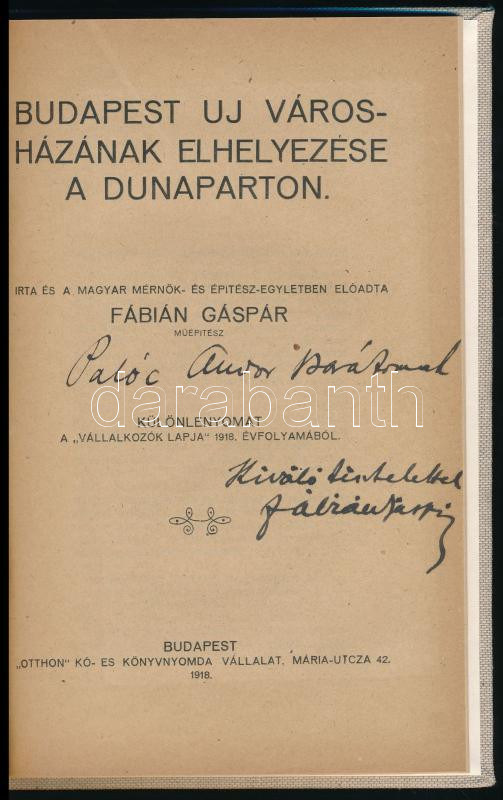 BUDAPEST UJ VÁROS-
HÁZÁNAK ELHELYEZÉSE
A DUNAPARTON.
IRTA ÉS A MAGYAR MÉRNÖK- ÉS ÉPITÉSZ-EGYLETBEN ELŐADTA
FÁBIÁN GÁSPÁR
MŰÉPITÉSZ
Palóc Andor barátomnak
darabanth
KÜLÖNLENYOMAT
A „VÁLLALKOZÓK LAPJA" 1918. ÉVFOLYAMÁBÓL.
Kiváló tisztelettel
Fábián Gáspár
BUDAPEST
„OTTHON" KŐ- ES KÖNYVNYOMDA VÁLLALAT, MÁRIA-UTCZA 42.
1918.